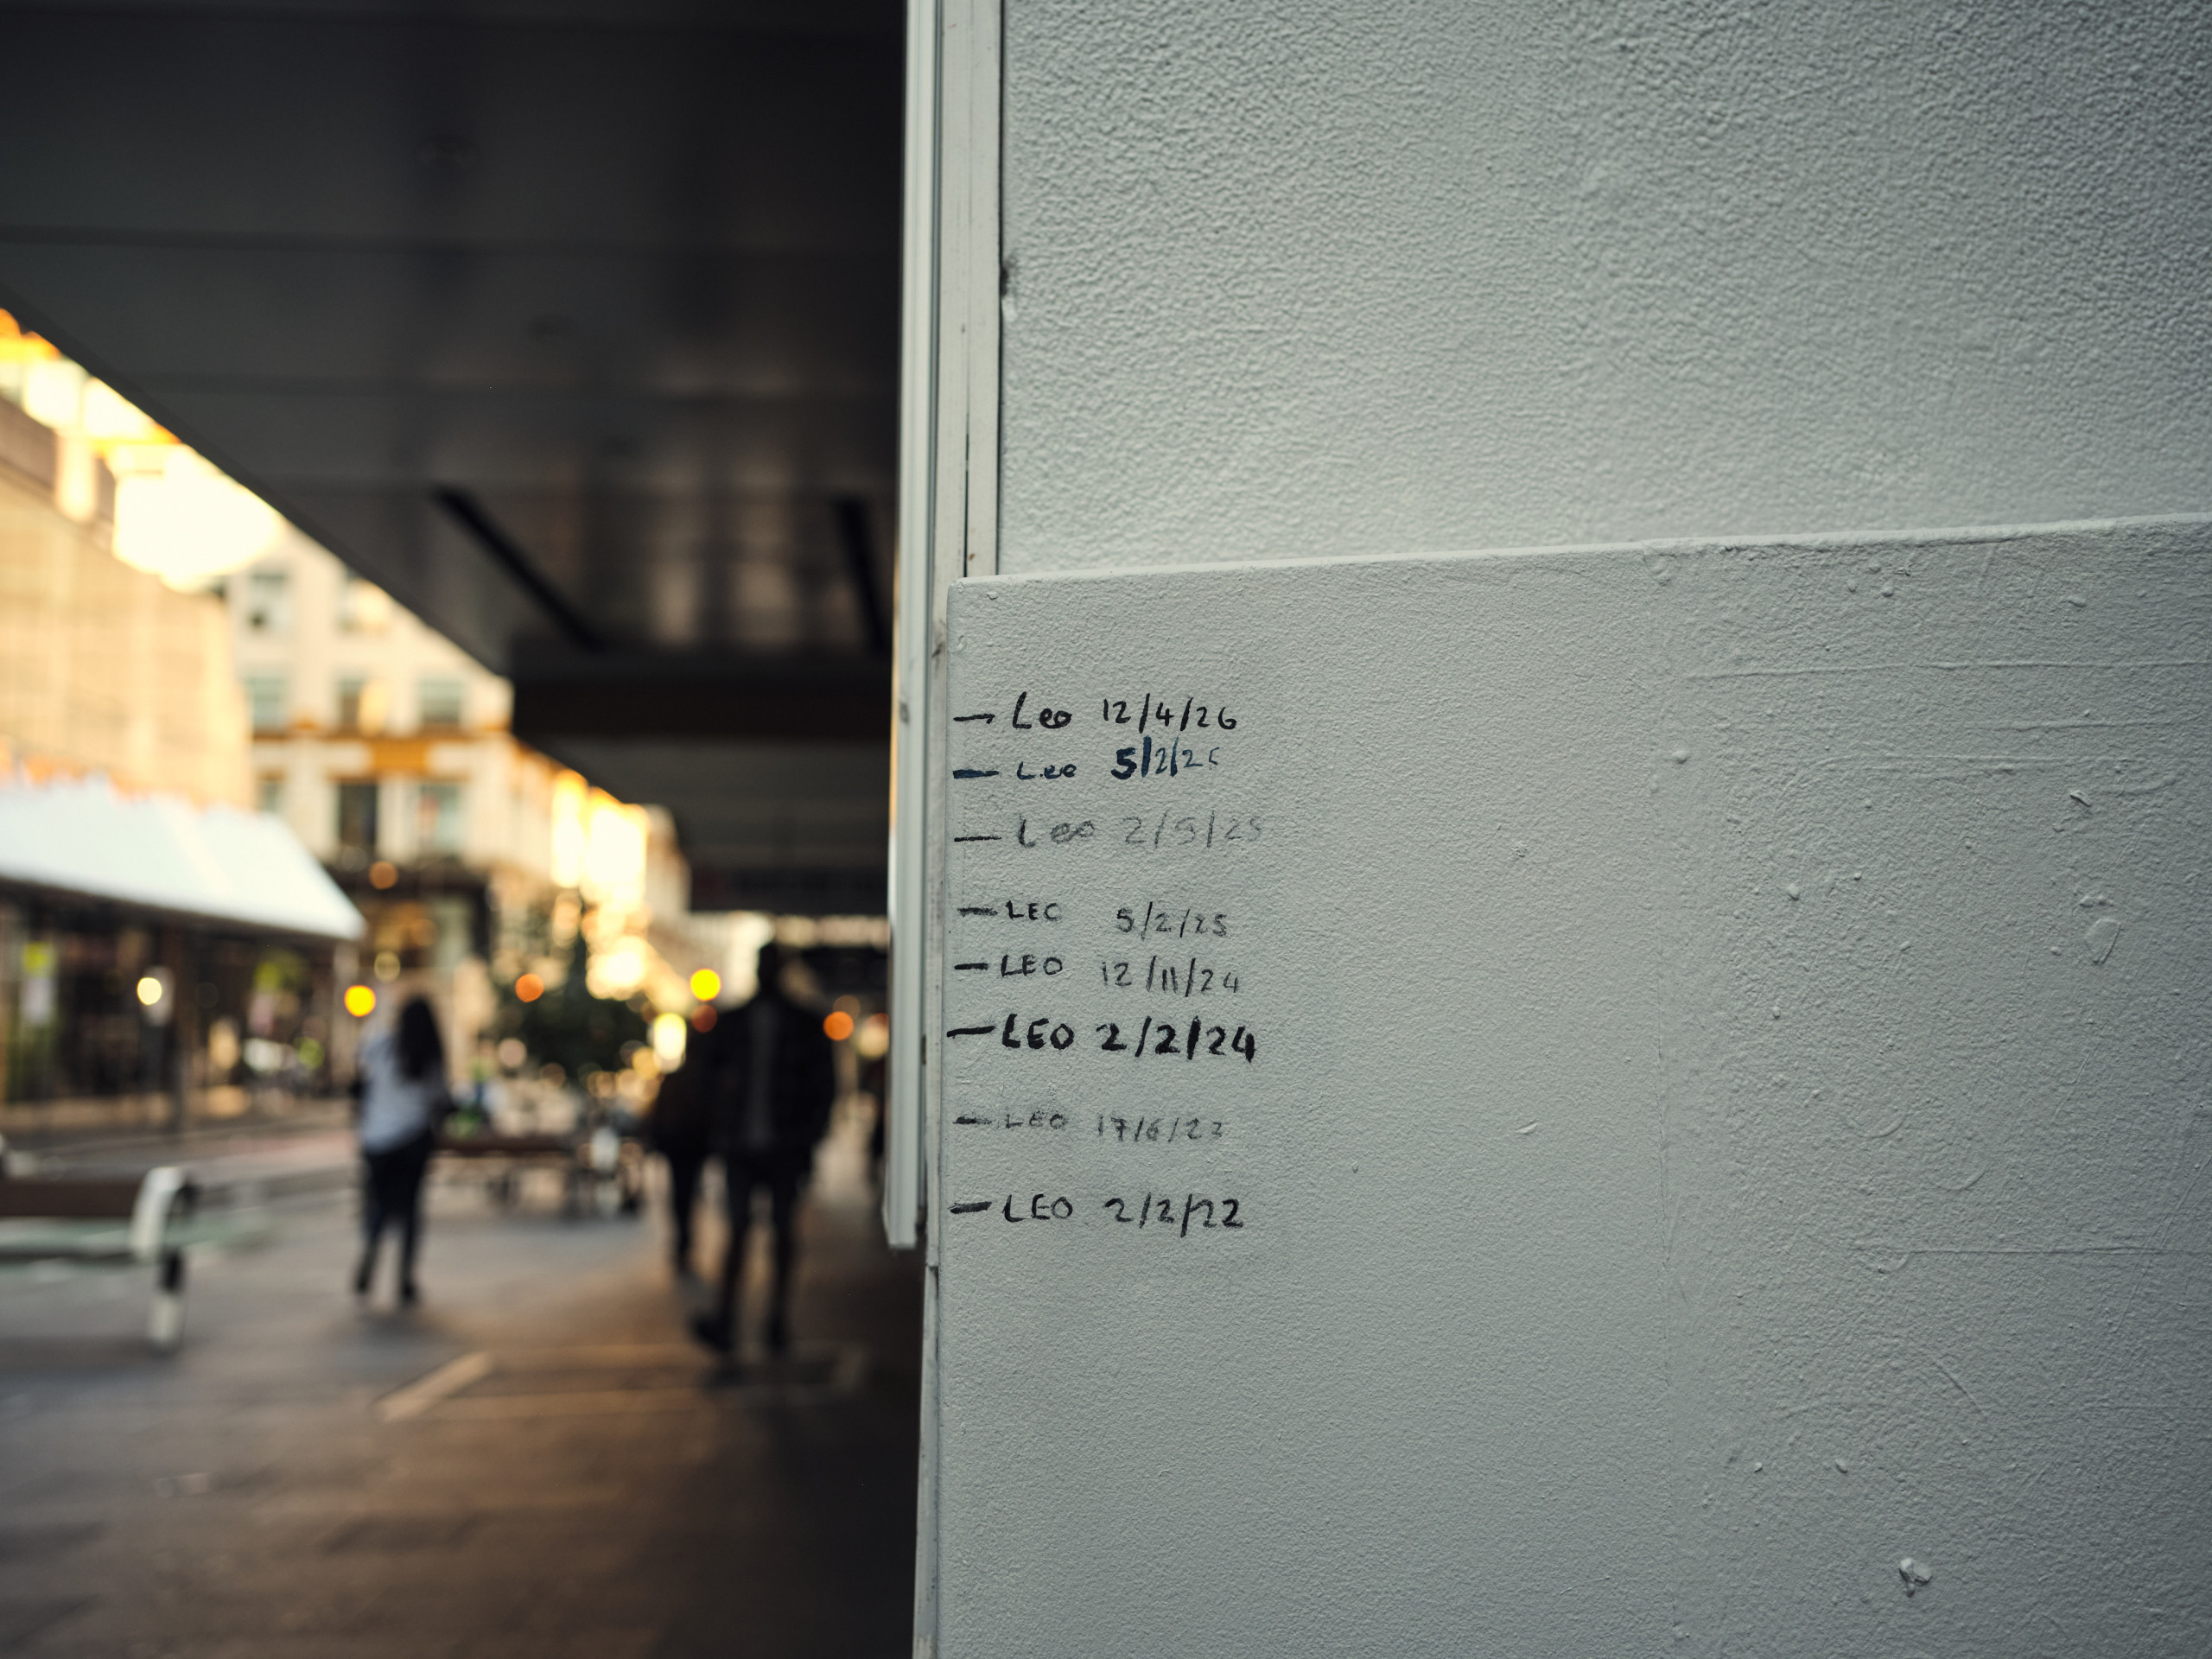 Leo 12/4/26
Leo 5/2/26
Leo 2/9/25
LEO 5/2/25
LEO 12/11/24
LEO 2/2/24
LEO
LEO 2/2/22